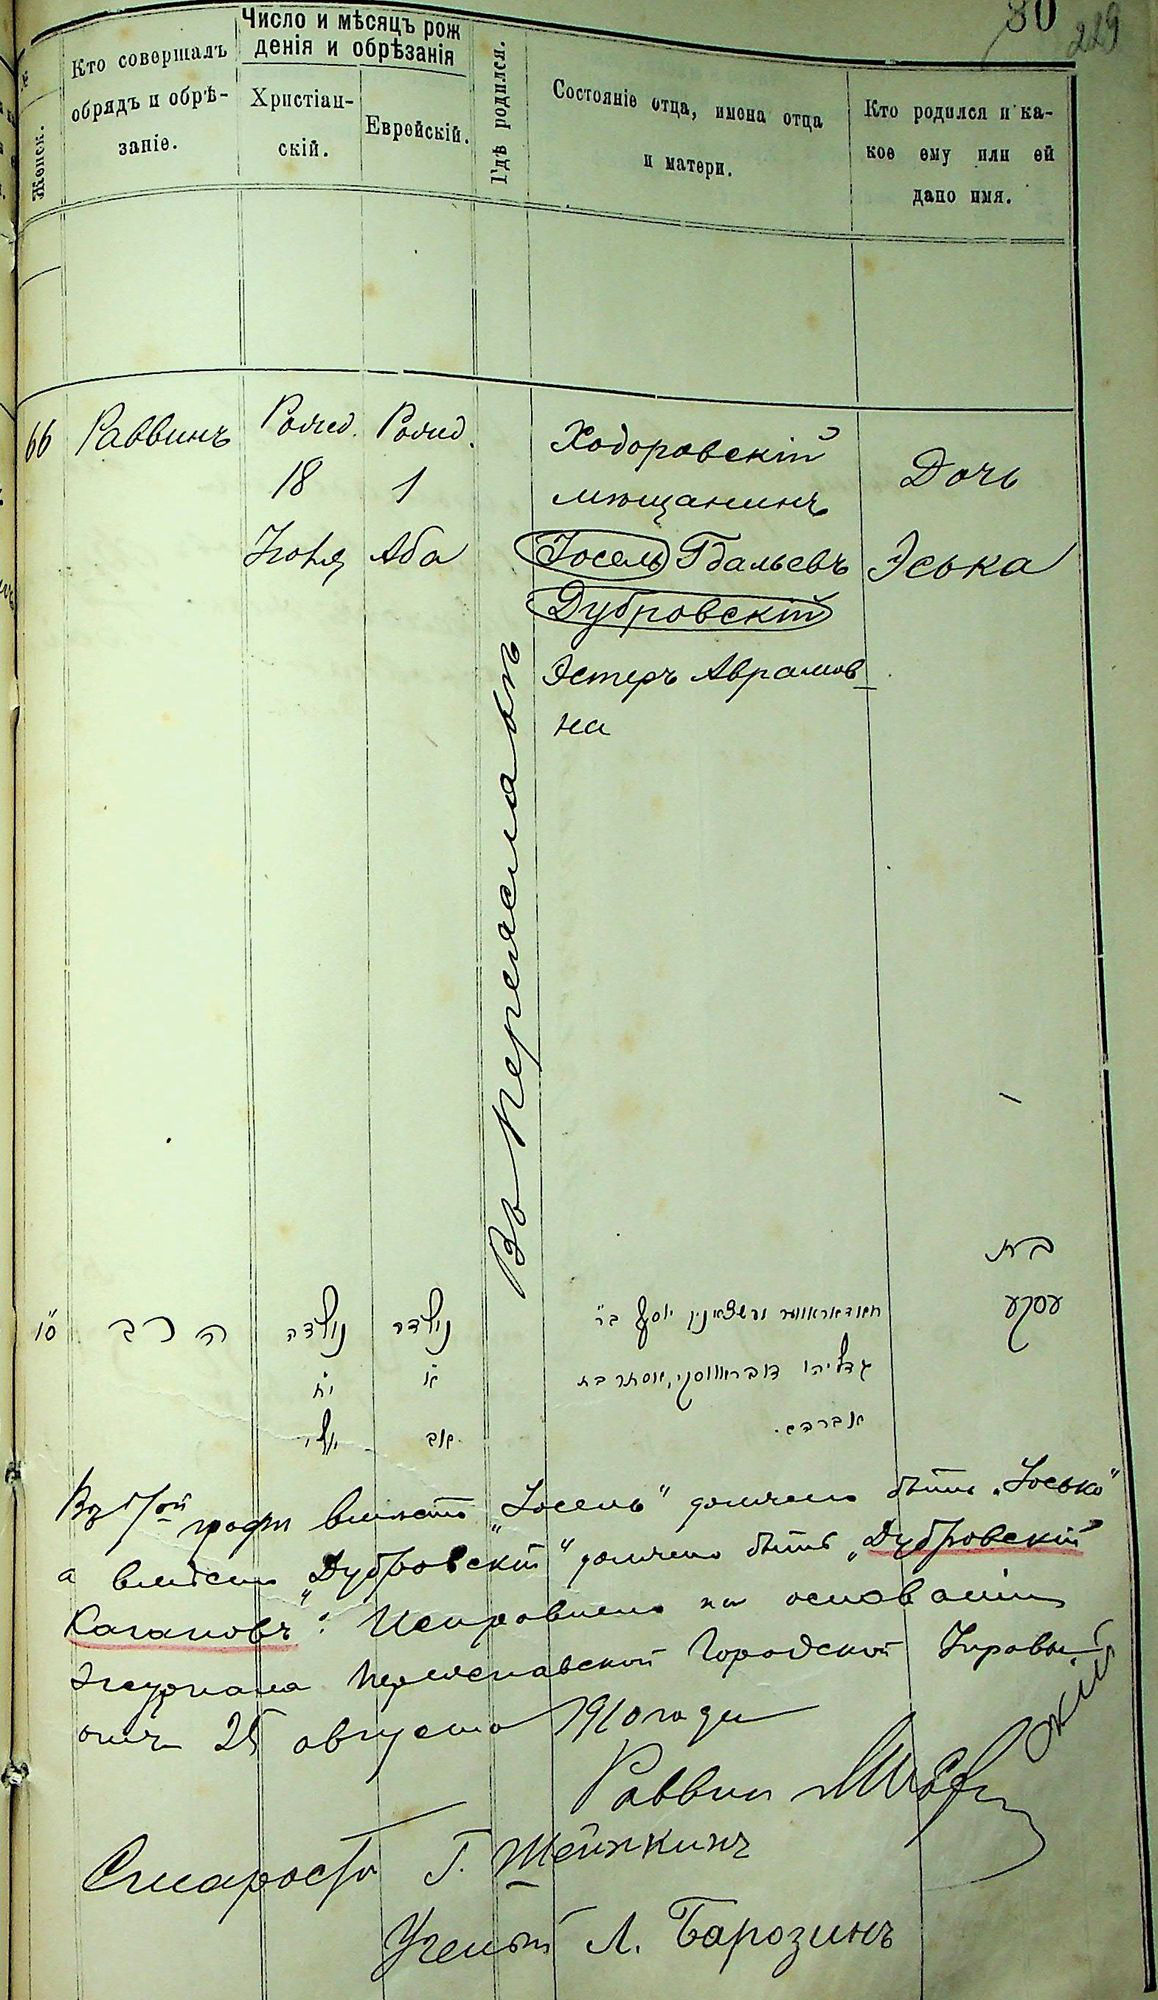 30
229
Женск.
Кто совершалъ
обрядъ и обрѣ-
заніе.
Число и мѣсяцъ рож
денія и обрѣзанія
Христіан-
скій.
Еврейскій.
Гдѣ родился.
Состояніе отца, имена отца
и матери.
Кто родился и ка-
кое ему или ей
дано имя.
66
Раввинъ
Рожд.
18
Іюля
Рожд.
1
Аба
Въ Переяславѣ
Ходоровскій
мѣщанинъ
Іосель Гдальевъ
Дубровскій
Эстеръ Аврамов-
на
Дочь
Эська
10
הרב
נולדה
יח
יולי
נולדה
א
אב
יוסף ב"ר
גדליהו
אסתר בת
אברהם.
בת
עסקע
Въ 5/ой графѣ вмѣсто „Іосель" должно быть „Іосько"
а вмѣсто „Дубровскій" должно быть „Дубровскій
Кагановъ". Исправлено на основаніи
журнала Переяславской Городской Управы
отъ 25 августа 1910 года
Раввин
Староста Г. Шейнкинъ
Ученый Л. Барозинъ